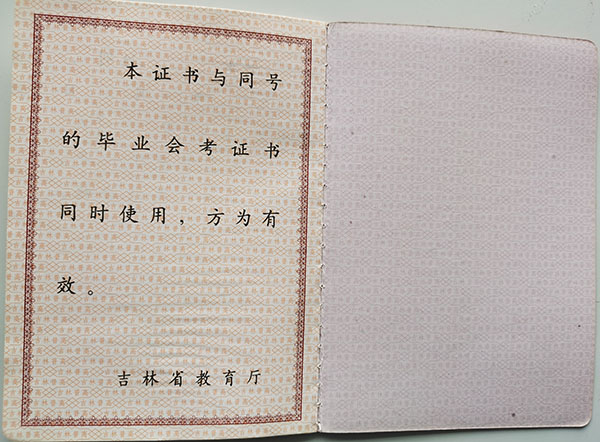 本证书与同号
的毕业会考证书
同时使用，方为有
效。
吉林省教育厅